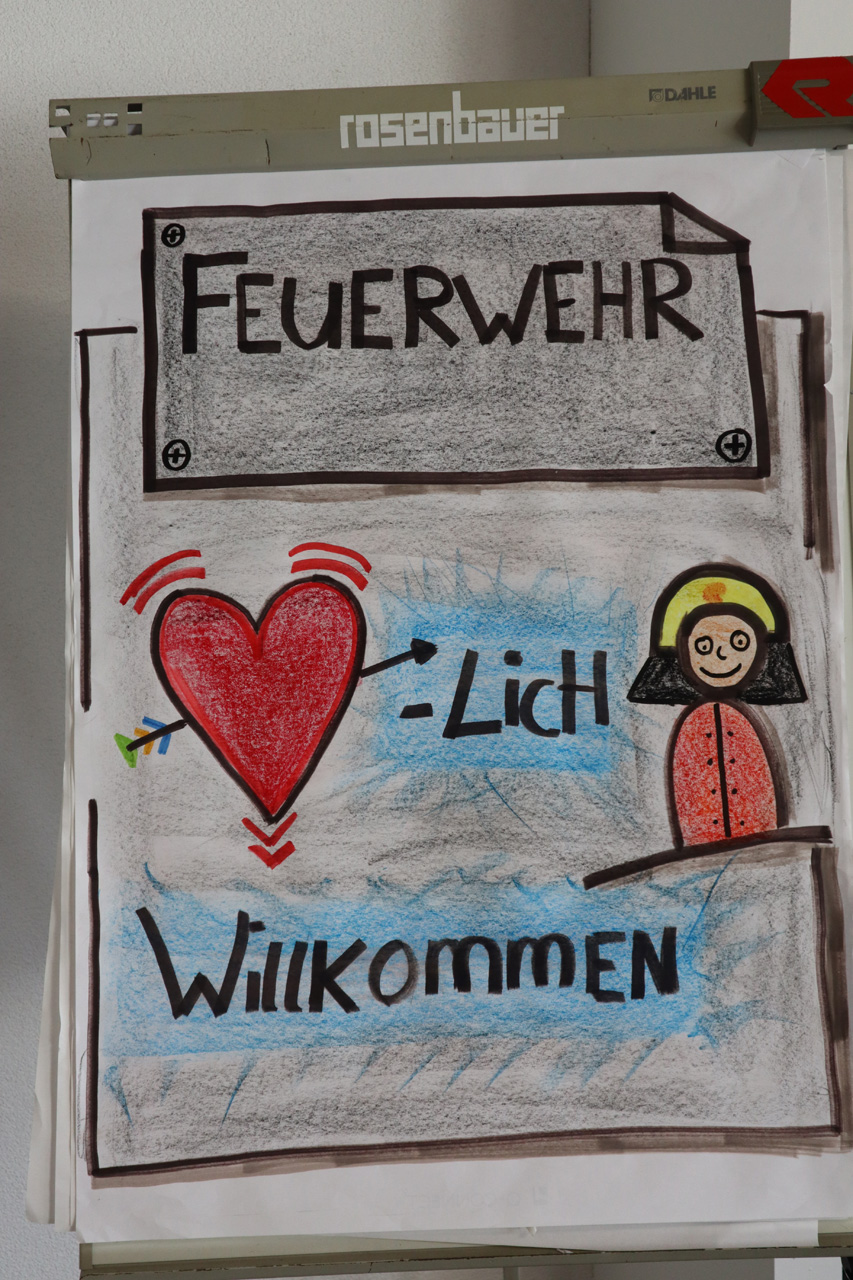 rosenbauer
DAHLE
FEUERWEHR
-LicH
WillKommEN